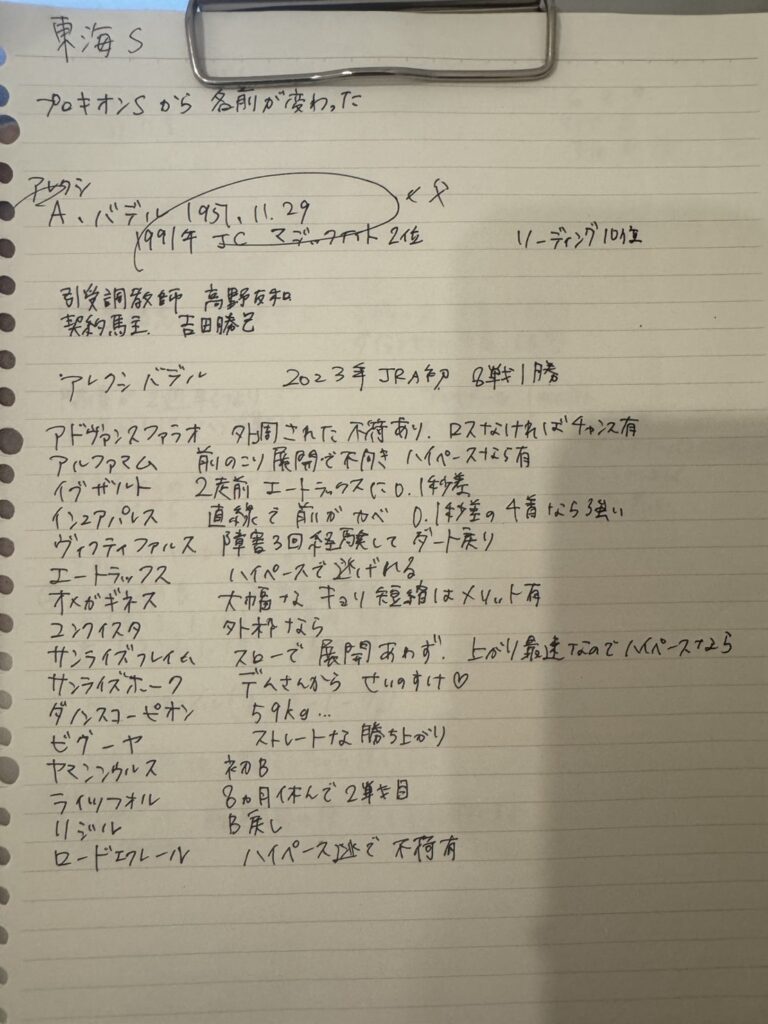 東海S
プロキオンSから 名前が変わった
アレクシ
A、バデル 1957、11.29 ← 父
1991年 JC マジックナイト 2位 リーディング10位
引受調教師 高野友和
契約馬主. 吉田勝己
アレクシバデル 2023年JRA初 8戦1勝
アドヴァンスファラオ 外回された不符あり. ロスなければチャンス有
アルファマム 前のこり展開で不向き ハイペースなら有
イグザルト 2走前エートラックスに0.1秒差
インユアパレス 直線で前がカベ 0.1秒差の4着なら強い
ヴィクティファルス 障害3回経験して ダート戻り
エートラックス ハイペースで逃げれる
オメガギネス 大幅なキョリ短縮はメリット有
コンクイスタ 外枠なら
サンライズフレイム スローで展開あわず. 上がり最速なのでハイペースなら
サンライズホーク デムさんから せいのすけ♡
ダノンスコーピオン 59kg…
ビグーヤ ストレートな勝ち上がり
ヤマニンウルス 初B
ライツフォル 8ヵ月休んで2戦目
リジル B戻し
ロードエクレール ハイペース逃で 不符有